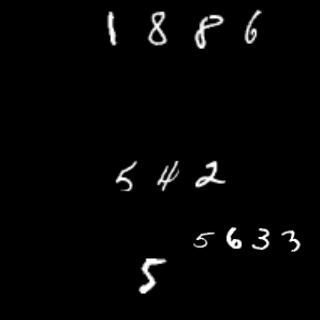 1886
542
5633
5